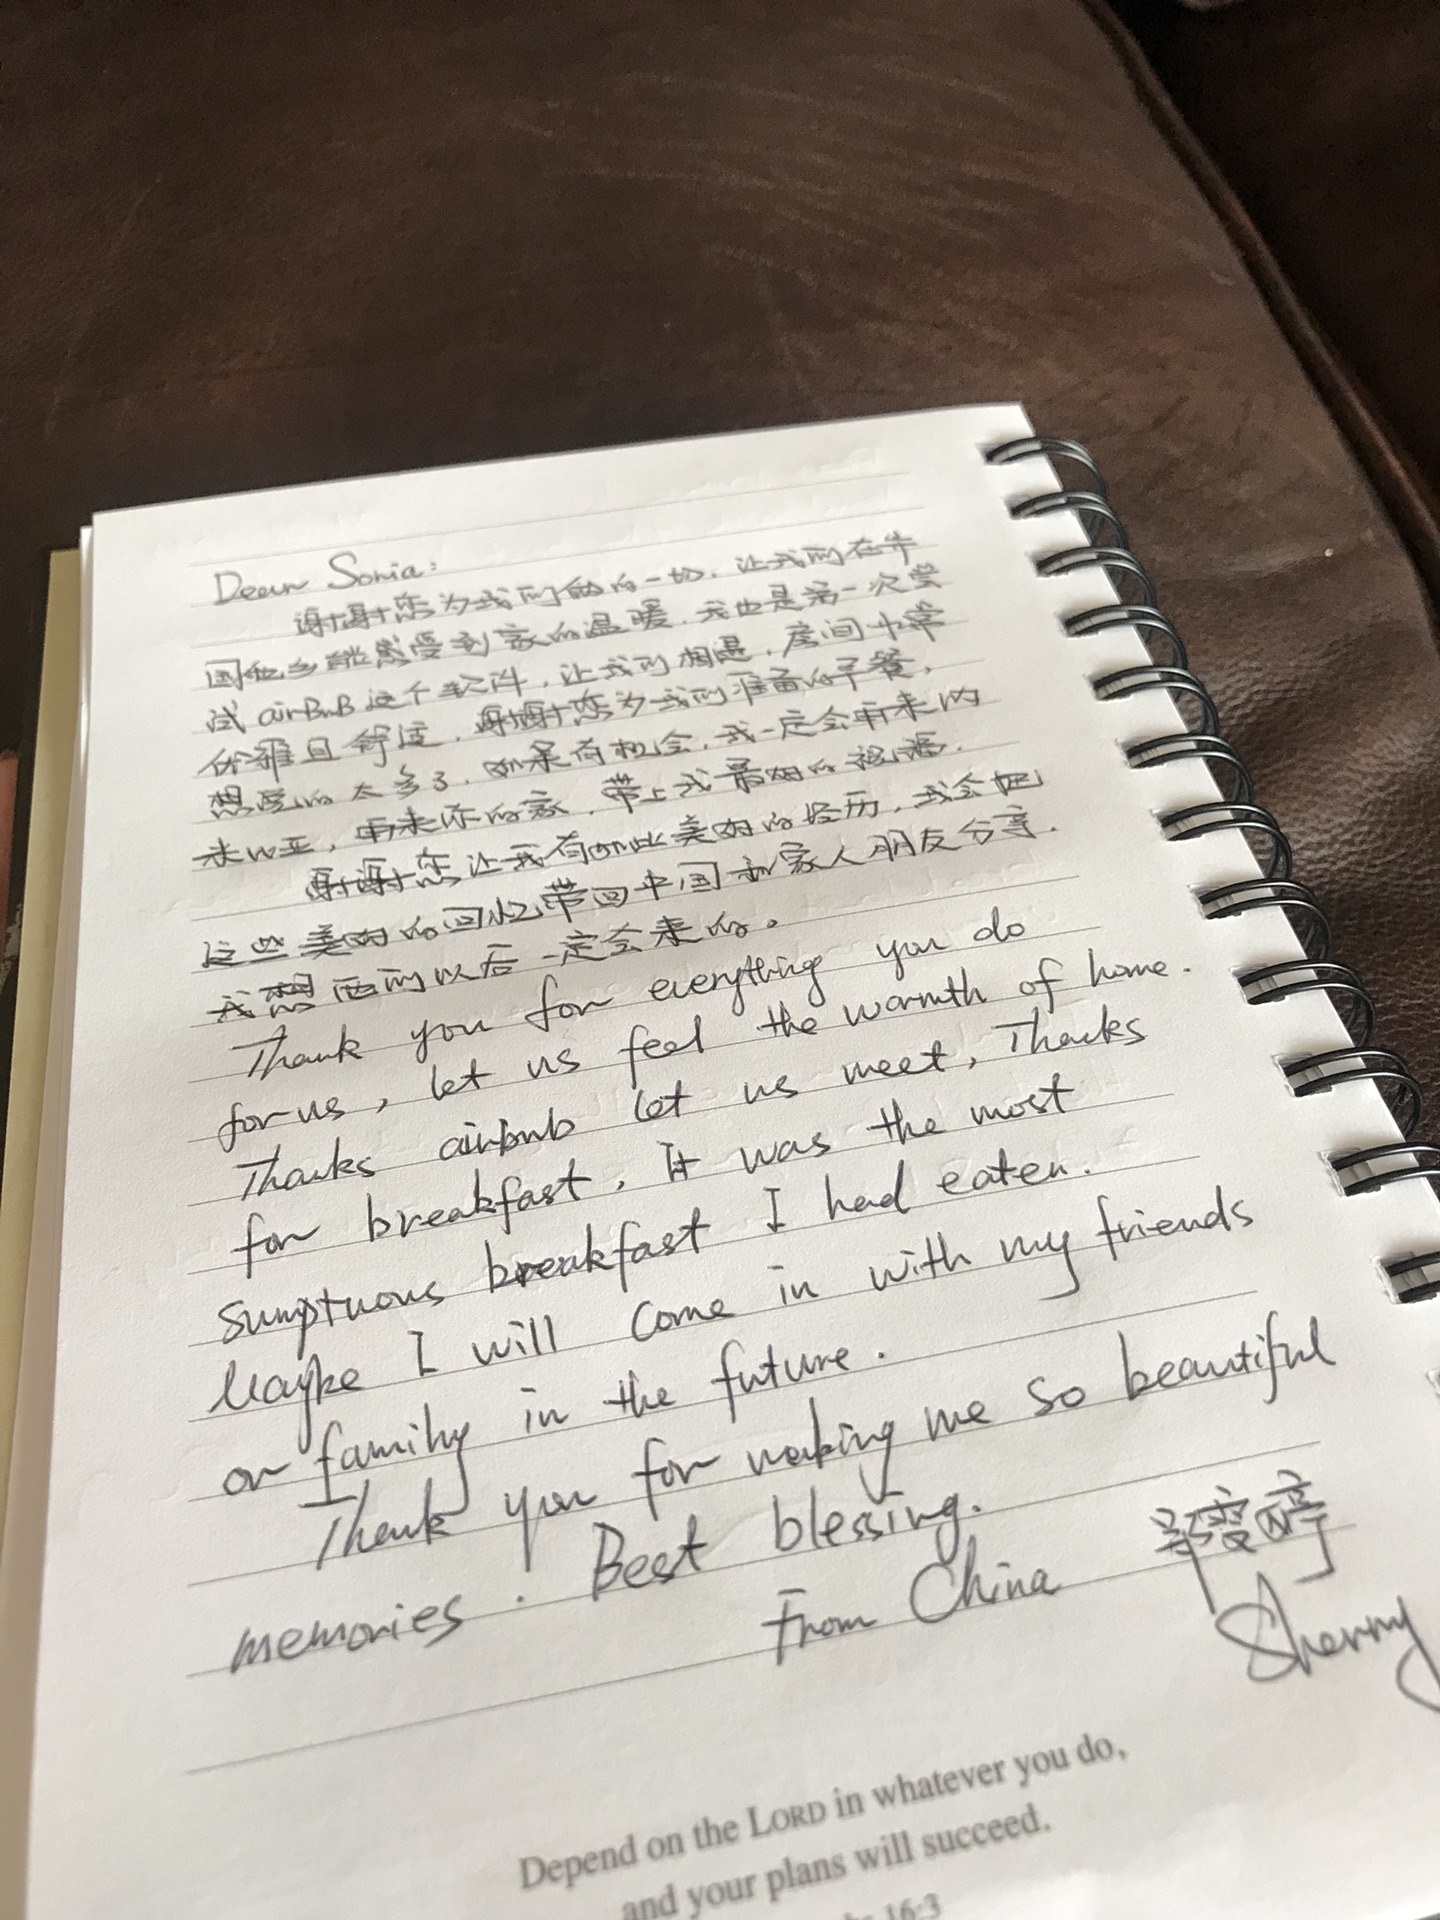 Dear Sonia:
谢谢您为我们做的一切，让我们在外
国他乡能感受到家的温暖，我也是第一次尝
试 airBnB 这个软件，让我们相遇，房间非常
优雅且舒适，谢谢您为我们准备的早餐，
想要的太多了，如果有机会，我一定会再来的
来，再来你的家，带上我最好的祝福．
谢谢您让我有如此美好的经历，我会把
这些美好的回忆带回中国和家人朋友分享．
我想我们以后一定会来的。
Thank you for everything you do
for us, let us feel the warmth of home.
Thanks airbnb let us meet, Thanks
for breakfast, It was the most
sumptuous breakfast I had eaten.
Maybe I will come in with my friends
or family in the future.
Thank you for making me so beautiful
memories. Best blessing.
From China
Sherry
Depend on the LORD in whatever you do,
and your plans will succeed.
16:3